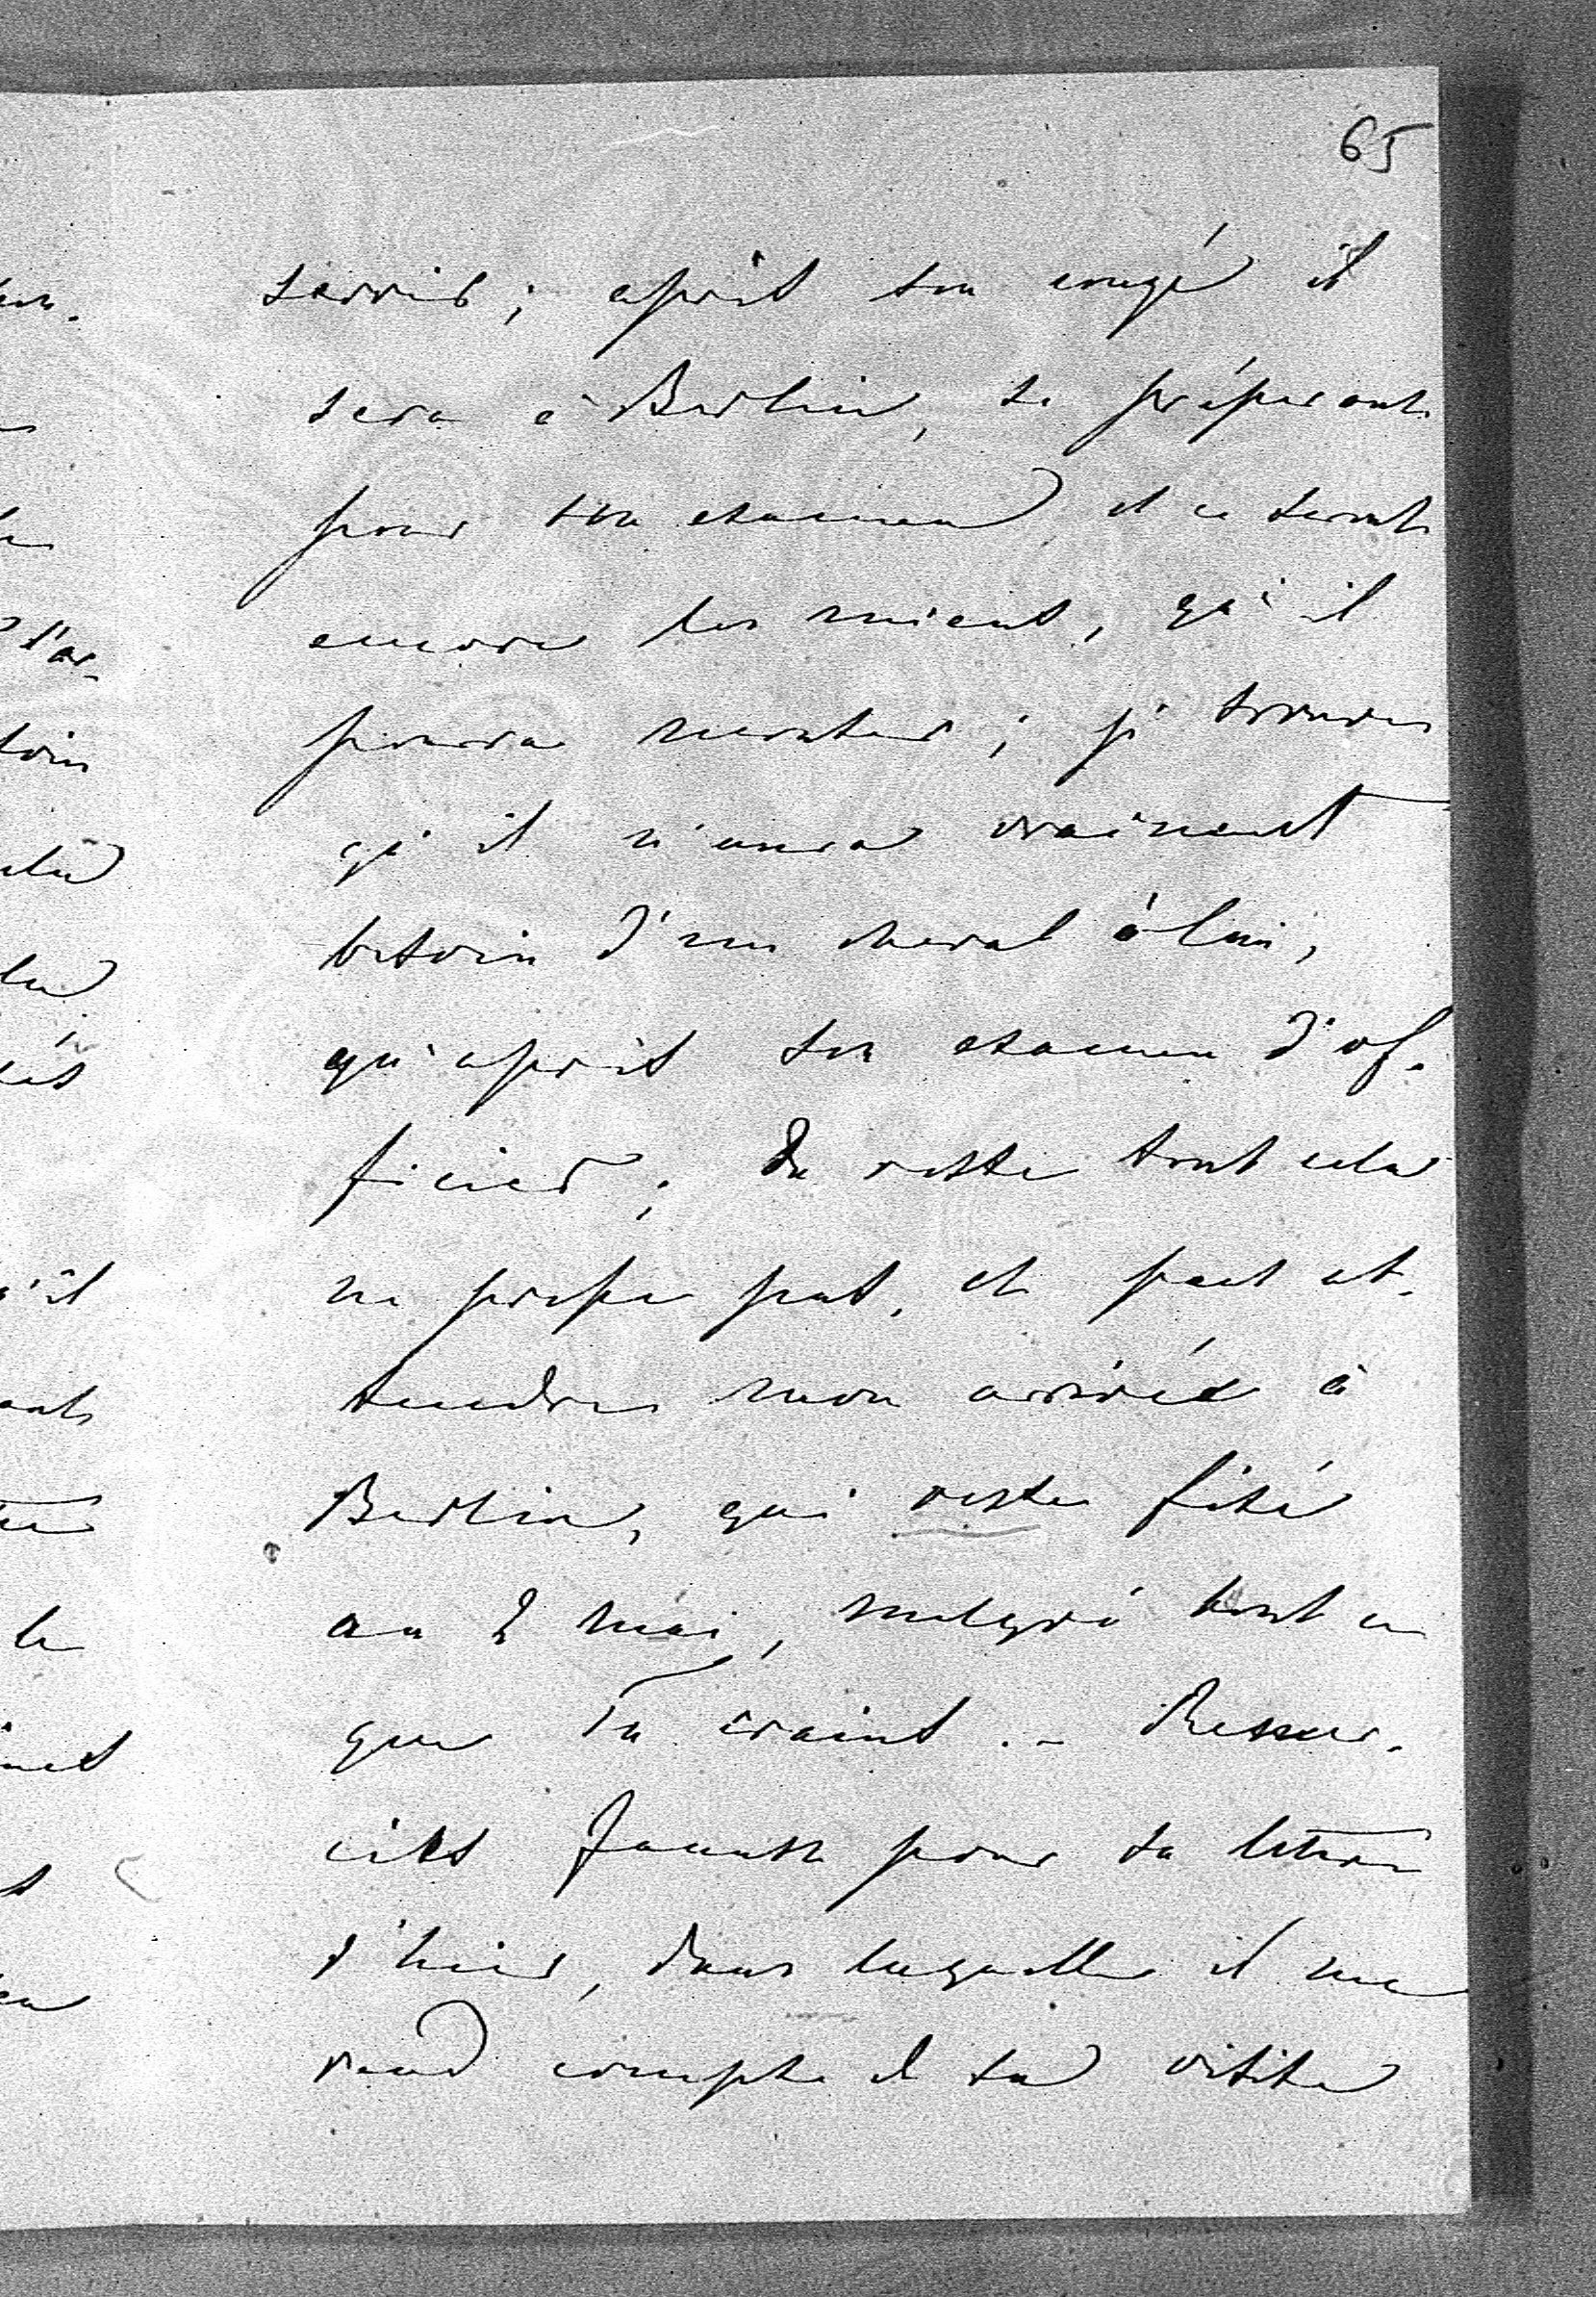 65
servir ; après son congé il
sera à Berlin, se préparant
pour son examen et ce seront
encore les miens, qu'il
pourra monter ; je trouve
qu'il n'aura vraiment
besoin d'un cheval à lui,
qu'après son examen d'of-
ficier ; du reste tout cela
ne presse pas, et peut at-
tendre mon arrivée à
Berlin, qui reste fixé
au 2 mai, malgré tout ce
que Tu crains. – Remer-
cies pour sa lettre
d'hier, dans laquelle il me
rend compte de sa visite